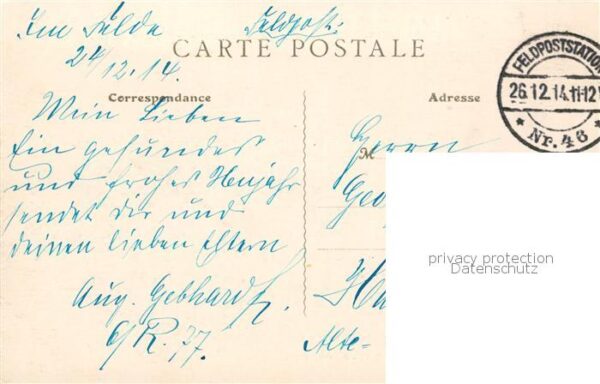 Im Felde Feldpost.
24/12.14.
CARTE POSTALE
Correspondance
Adresse
FELDPOSTSTATION
26.12.14.11-12V
* Nr. 46 *
Mein Lieben
Ein gesundes
und frohes Neujahr
sendet dir und
deinen lieben Eltern
Aug. Gebhardt.
R. 27.
M
Herrn
Geo
Ha
Alte-
privacy protection
Datenschutz